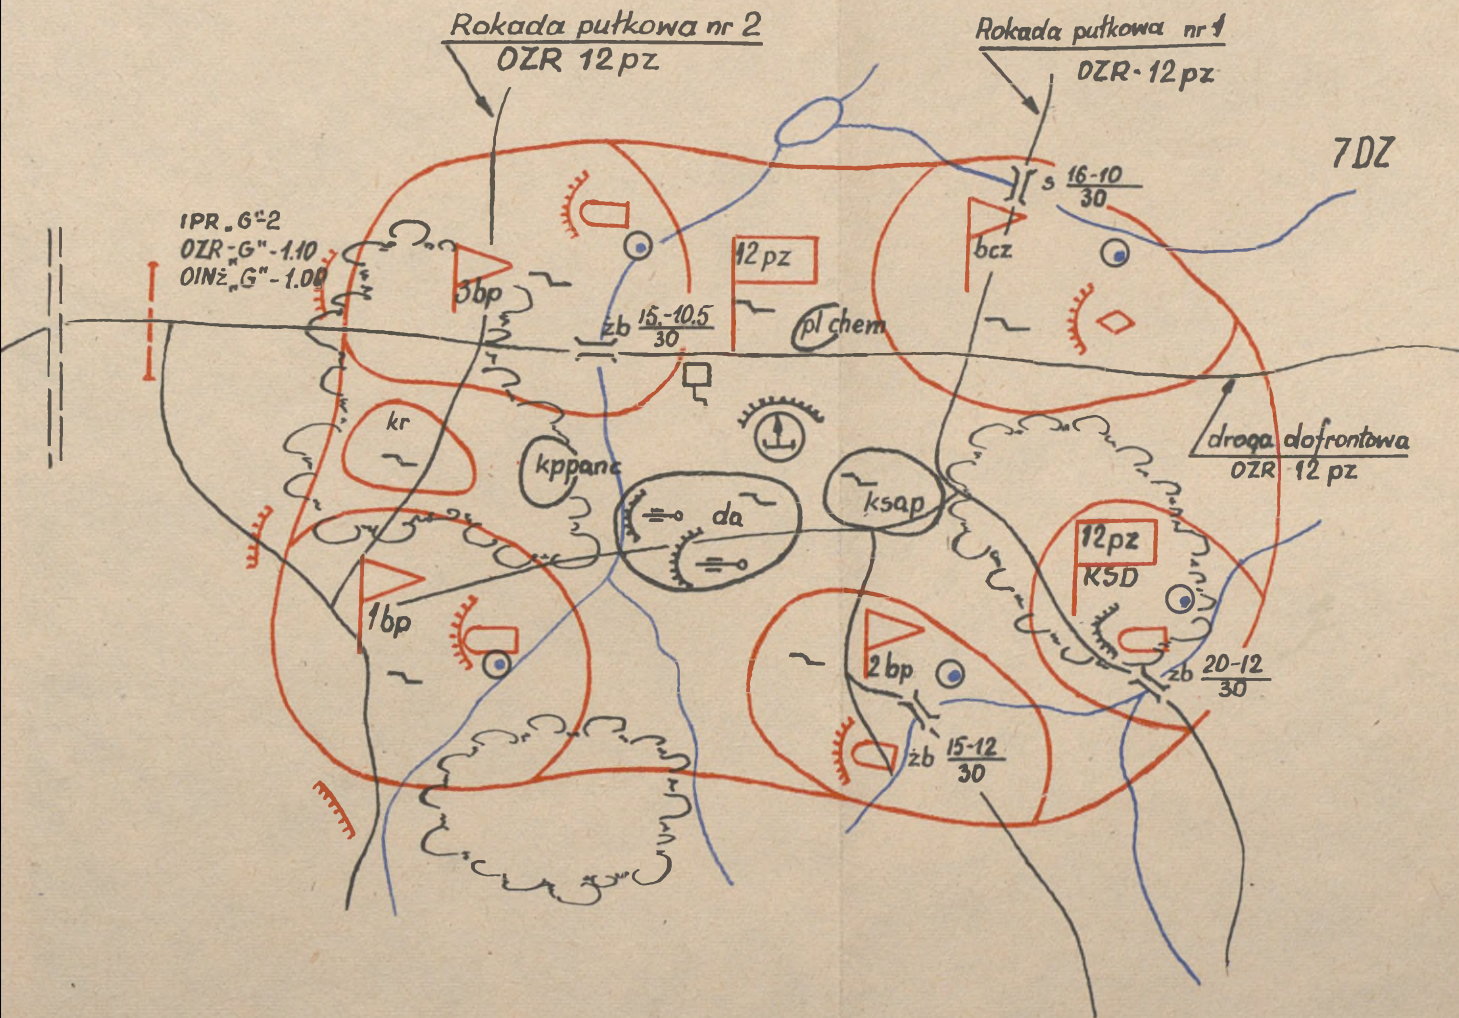 Rokada pułkowa nr 2
OZR 12 pz
Rokada pułkowa nr 1
OZR - 12 pz
7 DZ
s 16-10
30
IPR „G"-2
OZR-„G"-1.10
OINż „G"-1.00
3bp
12 pz
bcz
żb 15-10.5
30
pl chem
kr
kppanc
da
ksap
droga dofrontowa
OZR 12 pz
12pz
KSD
1bp
2bp
żb 20-12
30
żb 15-12
30